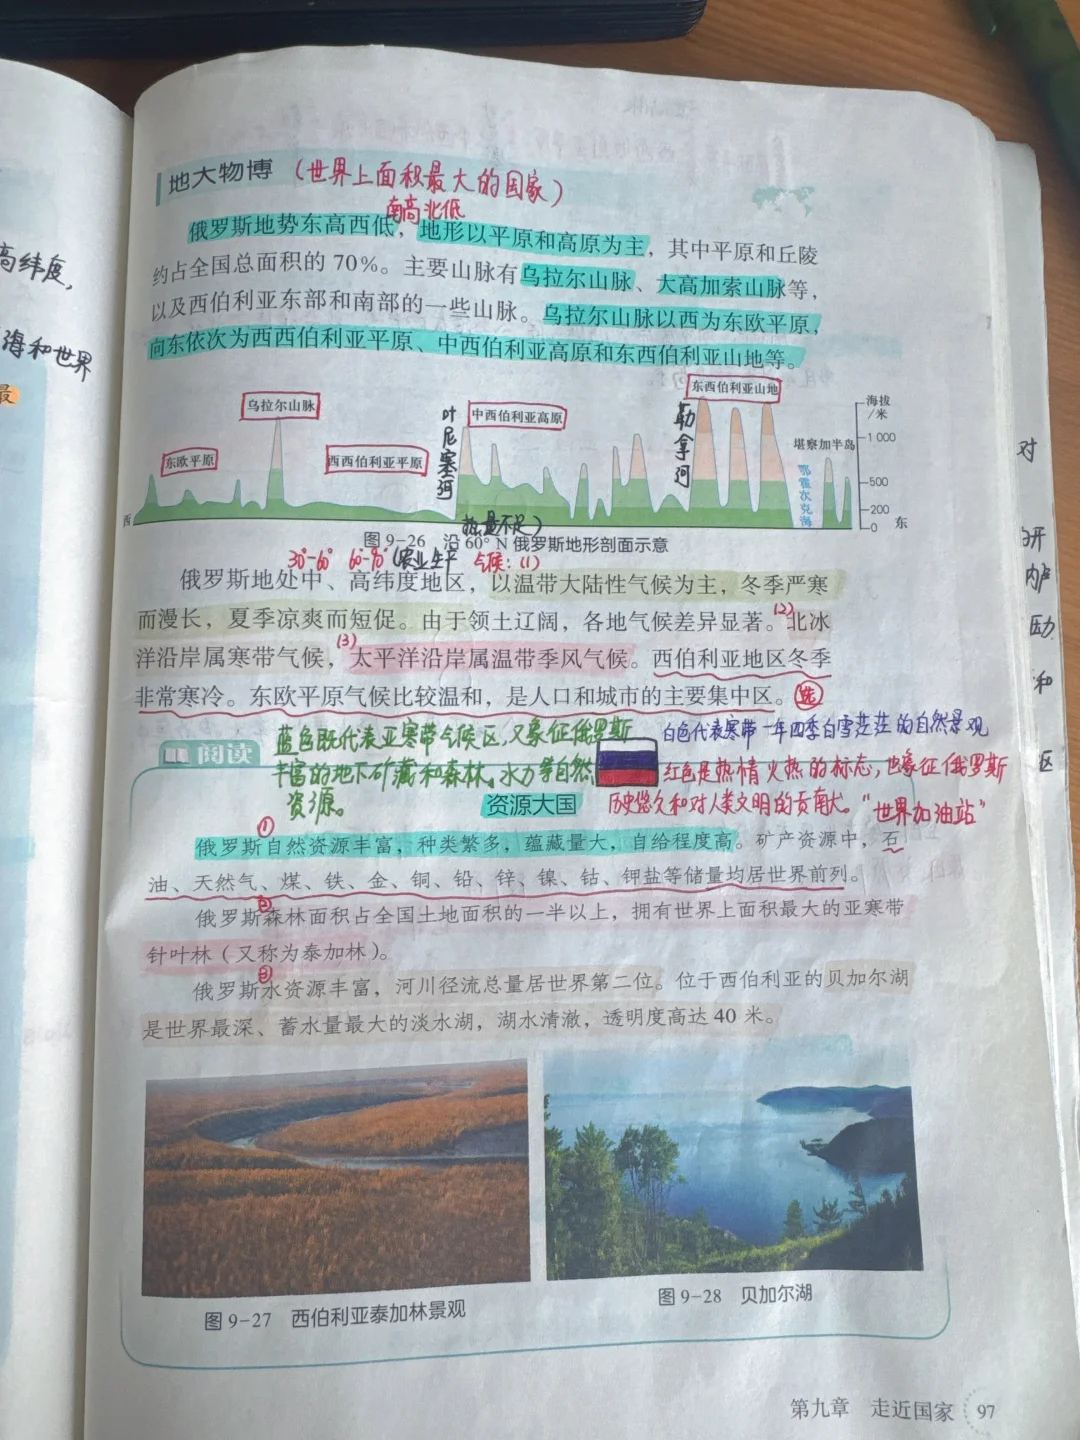 高纬度,
海和世界
最
地大物博 (世界上面积最大的国家)
南高北低
俄罗斯地势东高西低，地形以平原和高原为主，其中平原和丘陵
约占全国总面积的 70%。主要山脉有乌拉尔山脉、大高加索山脉等，
以及西伯利亚东部和南部的一些山脉。乌拉尔山脉以西为东欧平原，
向东依次为西西伯利亚平原、中西伯利亚高原和东西伯利亚山地等。
东欧平原
乌拉尔山脉
西西伯利亚平原
叶尼塞河
中西伯利亚高原
勒拿河
东西伯利亚山地
堪察加半岛
鄂霍次克海
海拔
/米
1 000
500
200
0
西
东
热量不足)
图 9-26 沿 60° N 俄罗斯地形剖面示意
30°-60° 60°-90° (农业生产 气候: (1)
俄罗斯地处中、高纬度地区，以温带大陆性气候为主，冬季严寒
而漫长，夏季凉爽而短促。由于领土辽阔，各地气候差异显著。(2)北冰
洋沿岸属寒带气候，(3)太平洋沿岸属温带季风气候。西伯利亚地区冬季
非常寒冷。东欧平原气候比较温和，是人口和城市的主要集中区。选
阅读
蓝色既代表亚寒带气候区,又象征俄罗斯
丰富的地下矿藏和森林、水力等自然
资源。
白色代表寒带一年四季白雪茫茫的自然景观
红色是热情火热的标志,也象征俄罗斯
历史悠久和对人类文明的贡献大。“世界加油站”
资源大国
①
俄罗斯自然资源丰富，种类繁多，蕴藏量大，自给程度高。矿产资源中，石
油、天然气、煤、铁、金、铜、铅、锌、镍、钴、钾盐等储量均居世界前列。
②
俄罗斯森林面积占全国土地面积的一半以上，拥有世界上面积最大的亚寒带
针叶林（又称为泰加林）。
③
俄罗斯水资源丰富，河川径流总量居世界第二位。位于西伯利亚的贝加尔湖
是世界最深、蓄水量最大的淡水湖，湖水清澈，透明度高达 40 米。
图 9-27 西伯利亚泰加林景观
图 9-28 贝加尔湖
第九章 走近国家 97
对
和
区